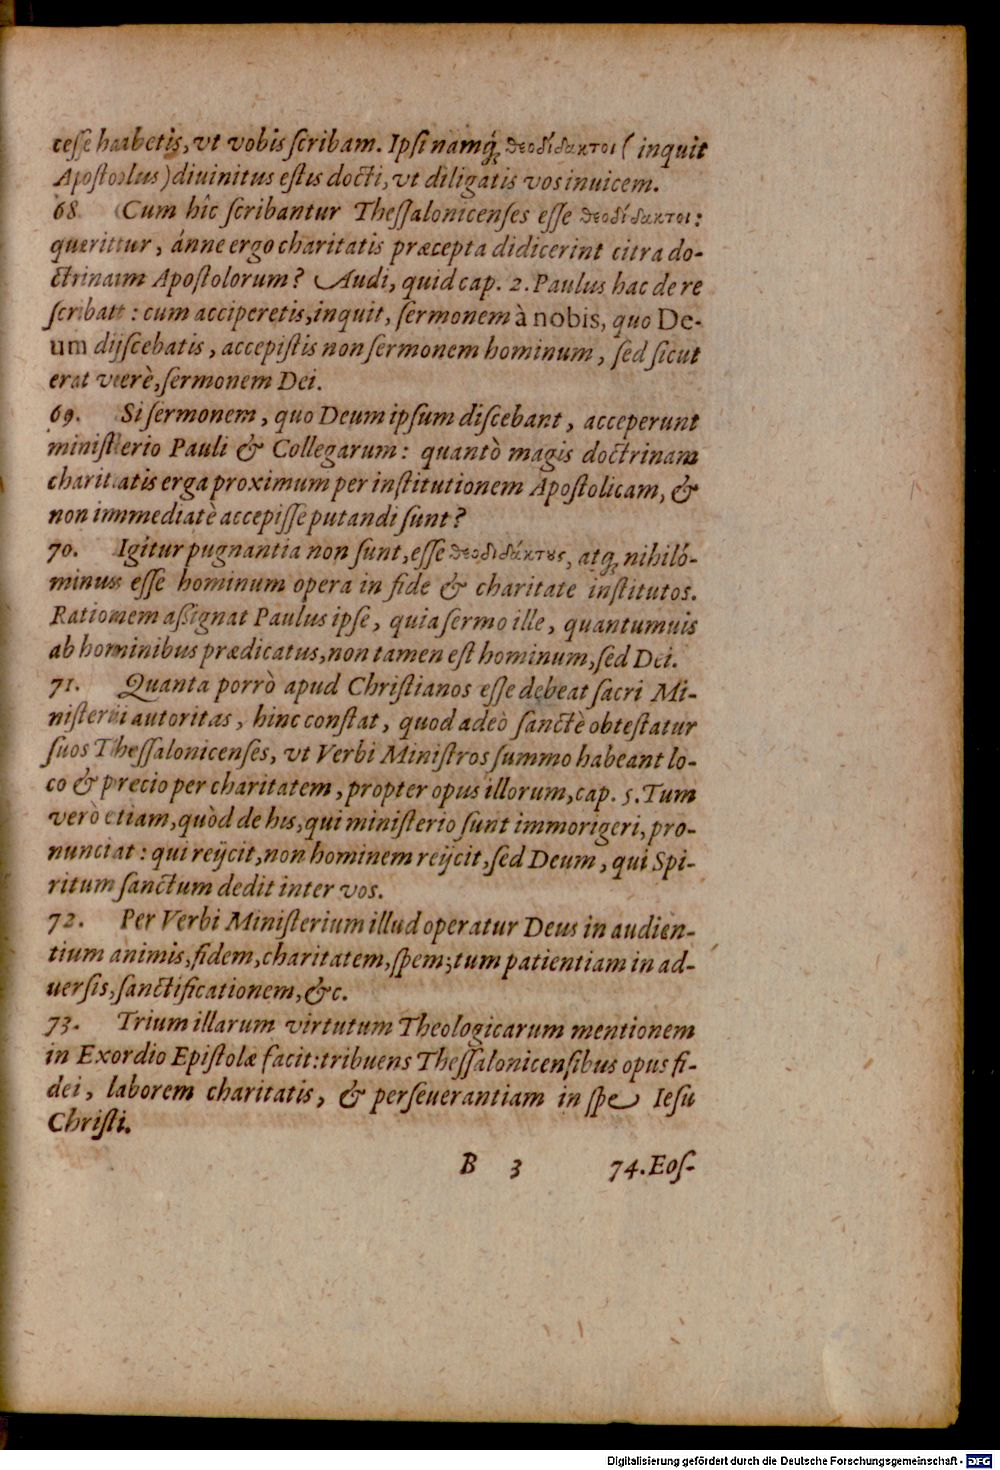 ceſſe habetis, vt vobis ſcribam. Ipſi namq́; θεοδίδακτοι (inquit
Apoſtolus) diuinitus eſtis docti, vt diligatis vos inuicem.
68. Cum hîc ſcribantur Theſſalonicenſes eſſe θεοδίδακτοι:
queritur, ánne ergo charitatis præcepta didicerint citra do-
ctrinam Apoſtolorum? Audi, quid cap. 2. Paulus hac de re
ſcribat: cum acciperetis, inquit, ſermonem à nobis, quo De-
um diſcebatis, accepiſtis non ſermonem hominum, ſed ſicut
erat verè, ſermonem Dei.
69. Si ſermonem, quo Deum ipſum diſcebant, acceperunt
miniſterio Pauli & Collegarum: quantò magis doctrinam
charitatis erga proximum per inſtitutionem Apoſtolicam, &
non immediatè accepiſſe putandi ſunt?
70. Igitur pugnantia non ſunt, eſſe θεοδιδάκτȣς, atq; nihiló-
minus eſſe hominum opera in fide & charitate inſtitutos.
Rationem aſsignat Paulus ipſe, quia ſermo ille, quantumuis
ab hominibus prædicatus, non tamen eſt hominum, ſed Dei.
71. Quanta porrò apud Chriſtianos eſſe debeat ſacri Mi-
niſterii autoritas, hinc conſtat, quod adeò ſanctè obteſtatur
ſuos Theſſalonicenſes, vt Verbi Miniſtros ſummo habeant lo-
co & precio per charitatem, propter opus illorum, cap. 5. Tum
verò etiam, quòd de his, qui miniſterio ſunt immorigeri, pro-
nunciat: qui reijcit, non hominem reijcit, ſed Deum, qui Spi-
ritum ſanctum dedit inter vos.
72. Per Verbi Miniſterium illud operatur Deus in audien-
tium animis, fidem, charitatem, ſpem; tum patientiam in ad-
uerſis, ſanctificationem, &c.
73. Trium illarum virtutum Theologicarum mentionem
in Exordio Epiſtolæ facit: tribuens Theſſalonicenſibus opus fi-
dei, laborem charitatis, & perſeuerantiam in ſpe Ieſu
Chriſti.
B 3 74. Eoſ-
Digitalisierung gefördert durch die Deutsche Forschungsgemeinschaft - DFG